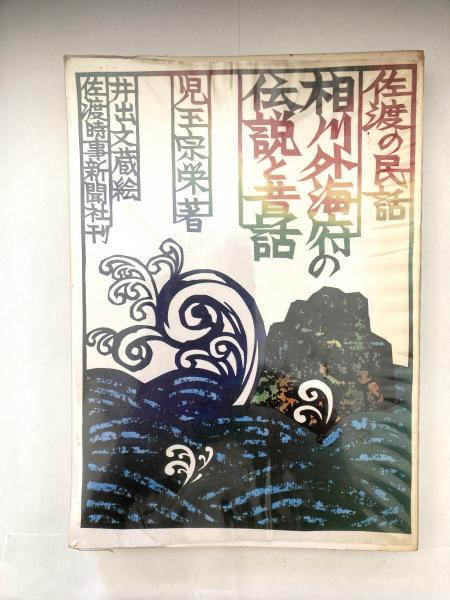 佐渡の民話
相川外海府の
伝説と昔話
児玉宗栄著
井出文蔵絵
佐渡時事新聞社刊